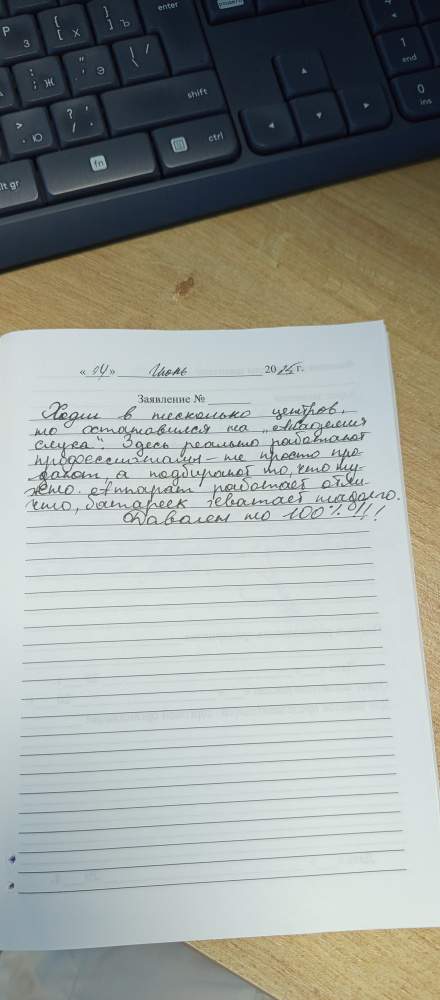 P
З
{ [ Х
} ] Ъ
enter
: ; Ж
" ' Э
| \ /
shift
> . Ю
? / ,
alt gr
fn
ctrl
1
end
0
ins
« 14 » Июнь 2025 г.
Заявление №
Ходил в несколько центров,
но остановился на „Академия
слуха". Здесь реально работают
профессионалы – не просто про-
дают, а подбирают то, что ну-
жно. Аппарат работает отли-
чно, батареек хватает надолго.
Даволен на 100%!!!